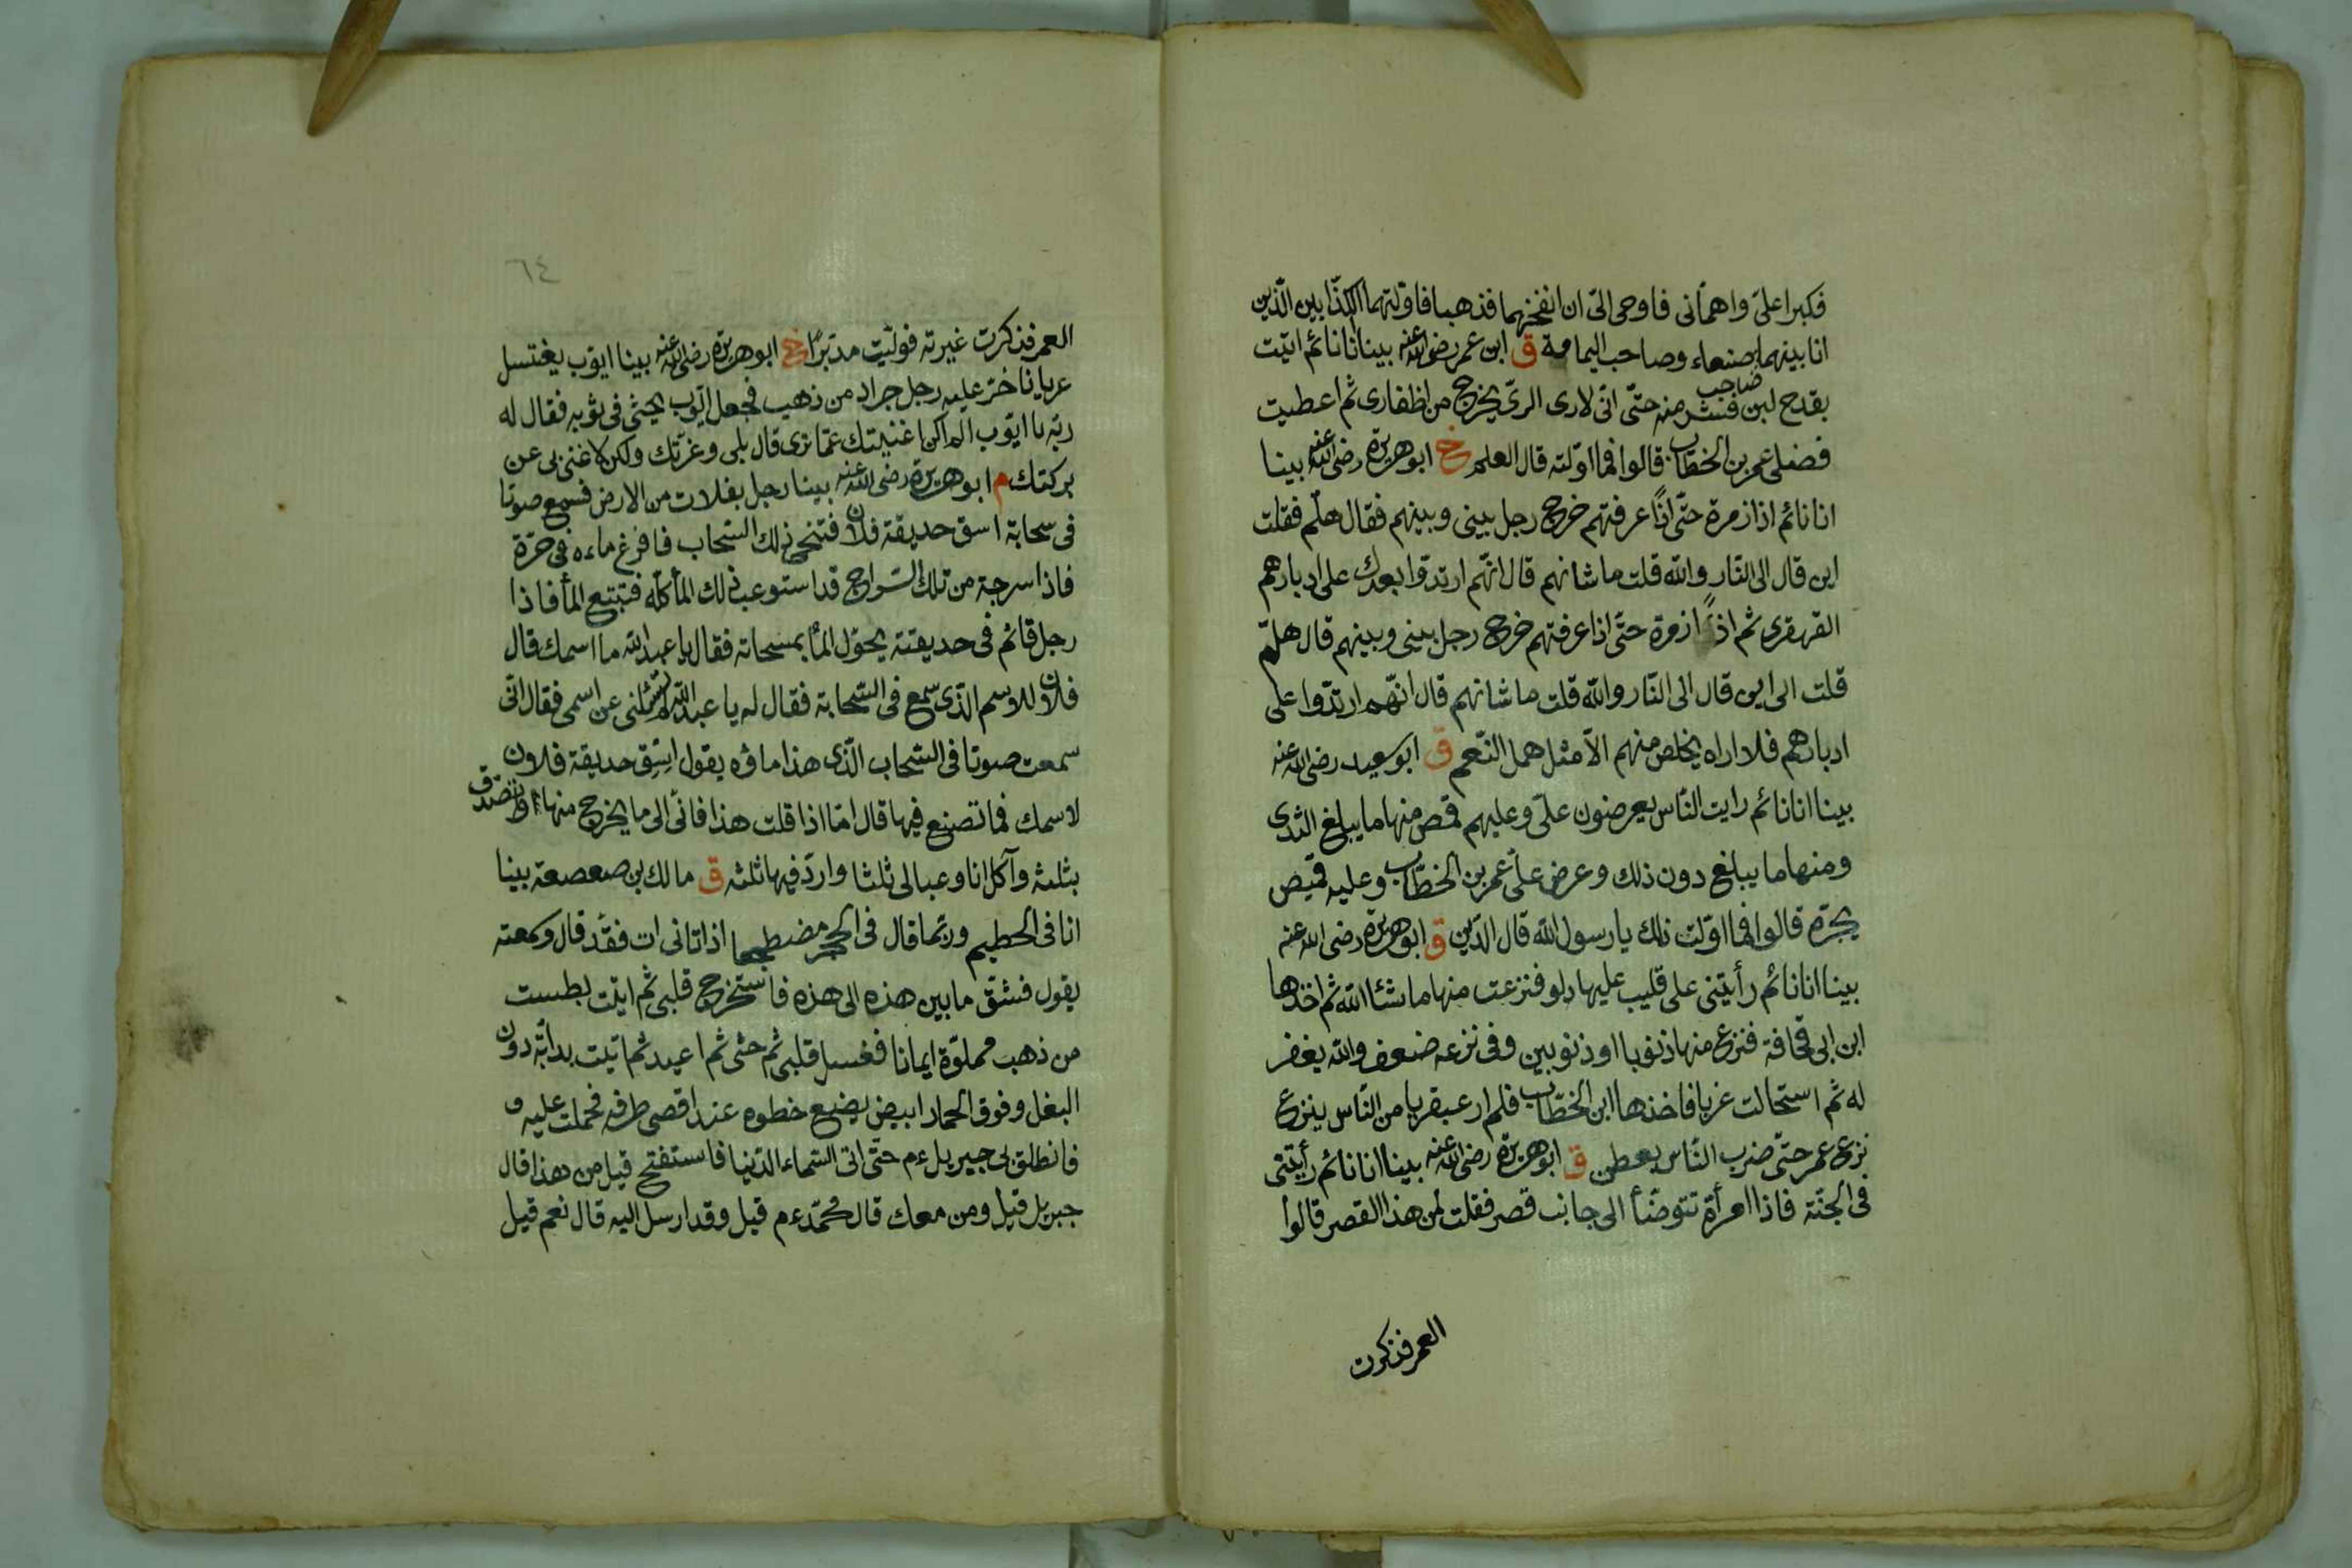 فكبرا علىّ واهمّانى فاوحى الىّ ان انفخهما فذهبا فاوّلتهما الكذّابين الّذين
انا بينهما صاحب صنعاء وصاحب اليمامة ق ابن عمر رضى الله عنه بينا انا نائم اتيت
بقدح لبن فشر منه حتّى انّى لارى الرىّ يخرج من اظفارى ثم اعطيت
فضلى عمر بن الخطّاب قالوا فما اوّلته قال العلم خ ابو هريرة رضى الله عنه بينا
انا نائم اذا زمرة حتّى اذا عرفتهم خرج رجل بينى وبينهم فقال هلّم فقلت
اين قال الى النّار والله قلت ما شانهم قال انّهم ارتدوا بعدك على ادبارهم
القهقرى ثم اذا زمرة حتّى اذا عرفتهم خرج رجل بينى وبينهم قال هلّم
قلت الى اين قال الى النّار والله قلت ما شانهم قال انّهم ارتدّوا على
ادبارهم فلا اراه يخلص منهم الاّ مثل همل النّعم ق ابو سعيد رضى الله عنه
بينا انا نائم رايت النّاس يعرضون علىّ وعليهم قمص منها ما يبلغ الثدى
ومنها ما يبلغ دون ذلك وعرض علىّ عمر بن الخطّاب وعليه قميص
يجرّه قالوا فما اوّلت ذلك يا رسول الله قال الدّين ق ابو هريرة رضى الله عنه
بينا انا نائم رأيتنى على قليب عليها دلو فنزعت منها ما شاء الله ثم اخذها
ابن ابى قحافة فنزع منها ذنوبا او ذنوبين وفى نزعه ضعف والله يغفر
له ثم استحالت غربا فاخذها ابن الخطّاب فلم ار عبقريا من النّاس ينزع
نزع عمر حتّى ضرب النّاس بعطن ق ابو هريرة رضى الله عنه بينا انا نائم رأيتنى
فى الجنّة فاذا امرأة تتوضّأ الى جانب قصر فقلت لمن هذا القصر قالوا
العمر فذكرت
٦٤
العمر فذكرت غيرته فولّيت مدبرًا خ ابو هريرة رضى الله عنه بينا ايوّب يغتسل
عريانا خرّ عليه رجل جراد من ذهب فجعل ايّوب يحثى فى ثوبه فقال له
ربّه يا ايوّب الم اكن اغنيتك عمّا ترى قال بلى وعزّتك ولكن لا غنى بى عن
بركتك م ابو هريرة رضى الله عنه بينا رجل بفلات من الارض فسمع صوتا
فى سحابة اسق حديقة فلان فتنحى ذلك السّحاب فافرغ ماءه فى حرّة
فاذا سرجة من تلك السّراج قد استوعب ذلك الماء كلّه فتبتع الماء فاذا
رجل قائم فى حديقته يحوّل الماء بمسحاته فقال يا عبد الله ما اسمك قال
فلان للاسم الّذى سمع فى السّحابة فقال له يا عبد الله لم تسئلنى عن اسمى فقال انّى
سمعت صوتا فى السّحاب الّذى هذا ماؤه يقول اسق حديقة فلان
لاسمك فما تصنع فيها قال امّا اذا قلت هذا فانّى الى ما يخرج منها فاتصدق
بثلثه وآكل انا وعيالى ثلثا واردّ فيها ثلثه ق مالك بن صعصعة بينا
انا فى الحطيم وربّما قال فى الحجر مضطجعا اذ اتانى ات فقدّ قال وسمعته
يقول فشقّ ما بين هذه الى هذه فاستخرج قلبى ثم اتيت بطست
من ذهب مملوّة ايمانا فغسل قلبى ثم حشى ثم اعيد ثم اتيت بدابّة دون
البغل وفوق الحمار ابيض يضع خطوه عند اقصى طرفه فحملت عليه
فانطلق بى جبريل ءم حتّى اتى السّماء الدّنيا فاستفتح قيل من هذا قال
جبريل قيل ومن معك قال محمّد ءم قيل وقد ارسل اليه قال نعم قيل